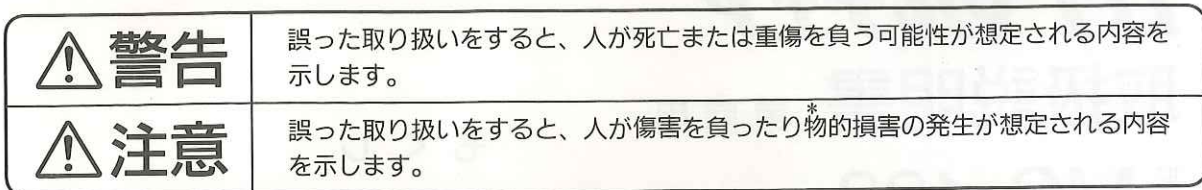 ⚠警告
誤った取り扱いをすると、人が死亡または重傷を負う可能性が想定される内容を
示します。
⚠注意
誤った取り扱いをすると、人が傷害を負ったり*物的損害の発生が想定される内容
を示します。